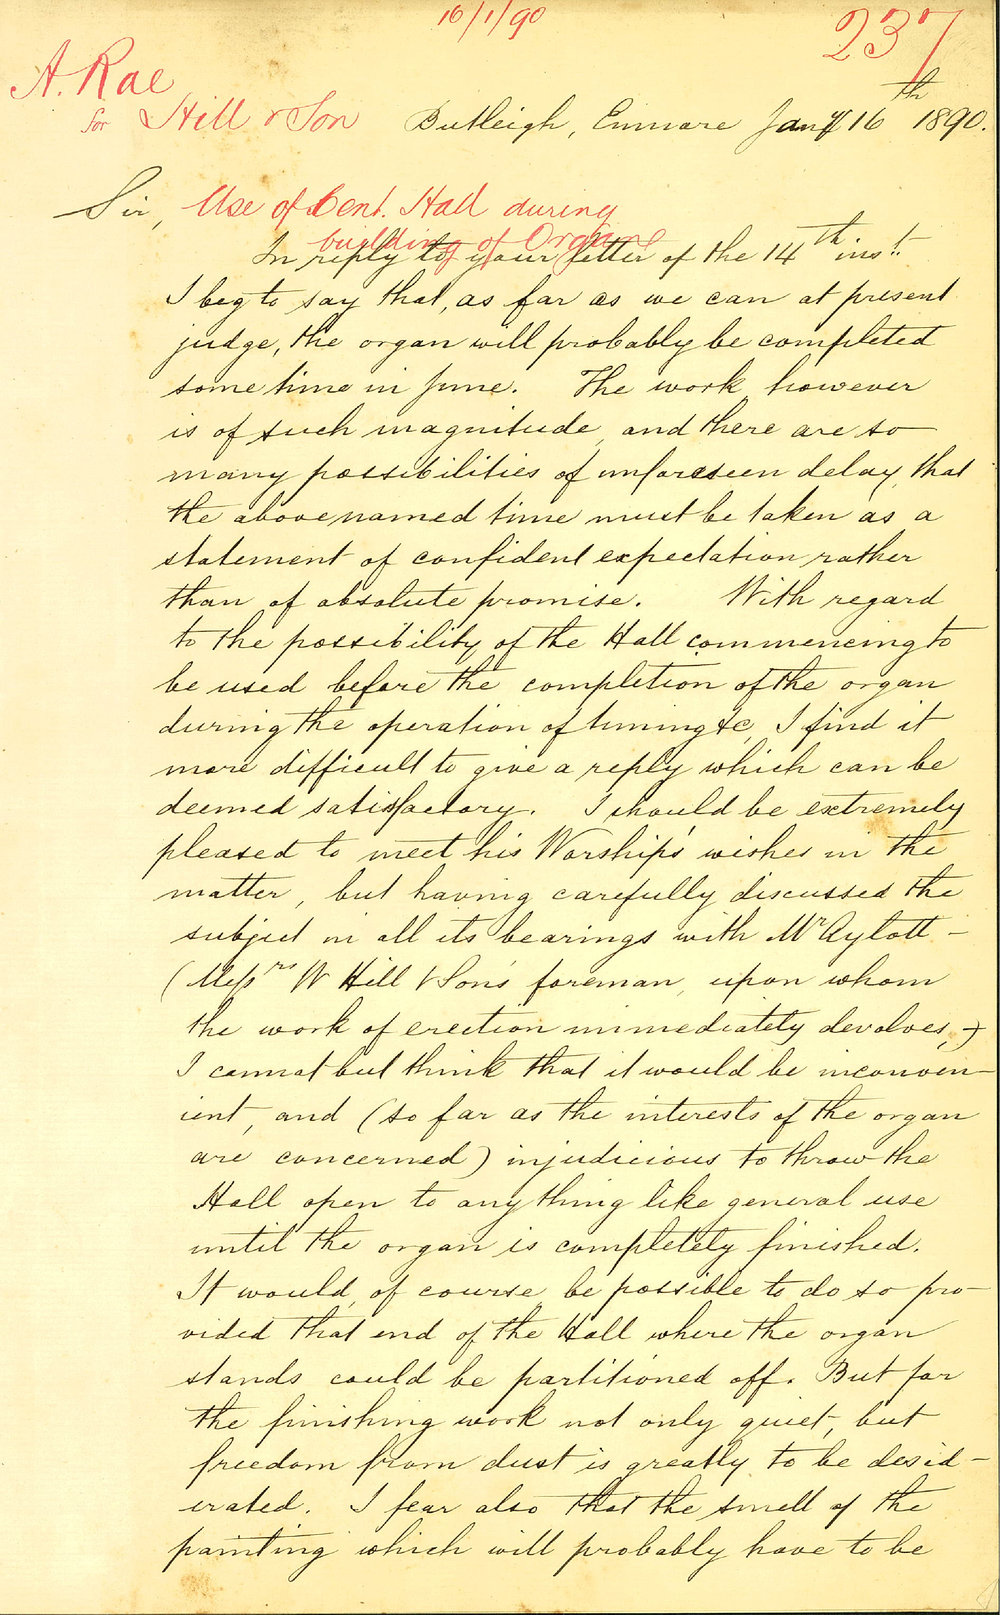 16/1/90
237
A. Rae
for Hill & Son
Butleigh, Enmore Jany 16th 1890.
Sir,
Use of Cent. Hall during
building of Organ
In reply to your letter of the 14th inst.
I beg to say that, as far as we can at present
judge, the organ will probably be completed
some time in June. The work however
is of such magnitude, and there are so
many possibilities of unforeseen delay, that
the above named time must be taken as a
statement of confident expectation rather
than of absolute promise. With regard
to the possibility of the Hall commencing to
be used before the completion of the organ
during the operation of tuning &c, I find it
more difficult to give a reply which can be
deemed satisfactory. I should be extremely
pleased to meet his Worship's wishes in the
matter, but having carefully discussed the
subject in all its bearings with Mr Aylott -
(Messrs W Hill & Sons foreman, upon whom
the work of erection immediately devolves,)
I cannot but think that it would be inconven-
ient, and (so far as the interests of the organ
are concerned) injudicious to throw the
Hall open to anything like general use
until the organ is completely finished.
It would, of course, be possible to do so pro-
vided that end of the Hall where the organ
stands could be partitioned off. But for
the finishing work not only quiet, but
freedom from dust is greatly to be desid-
erated. I fear also that the smell of the
painting which will probably have to be